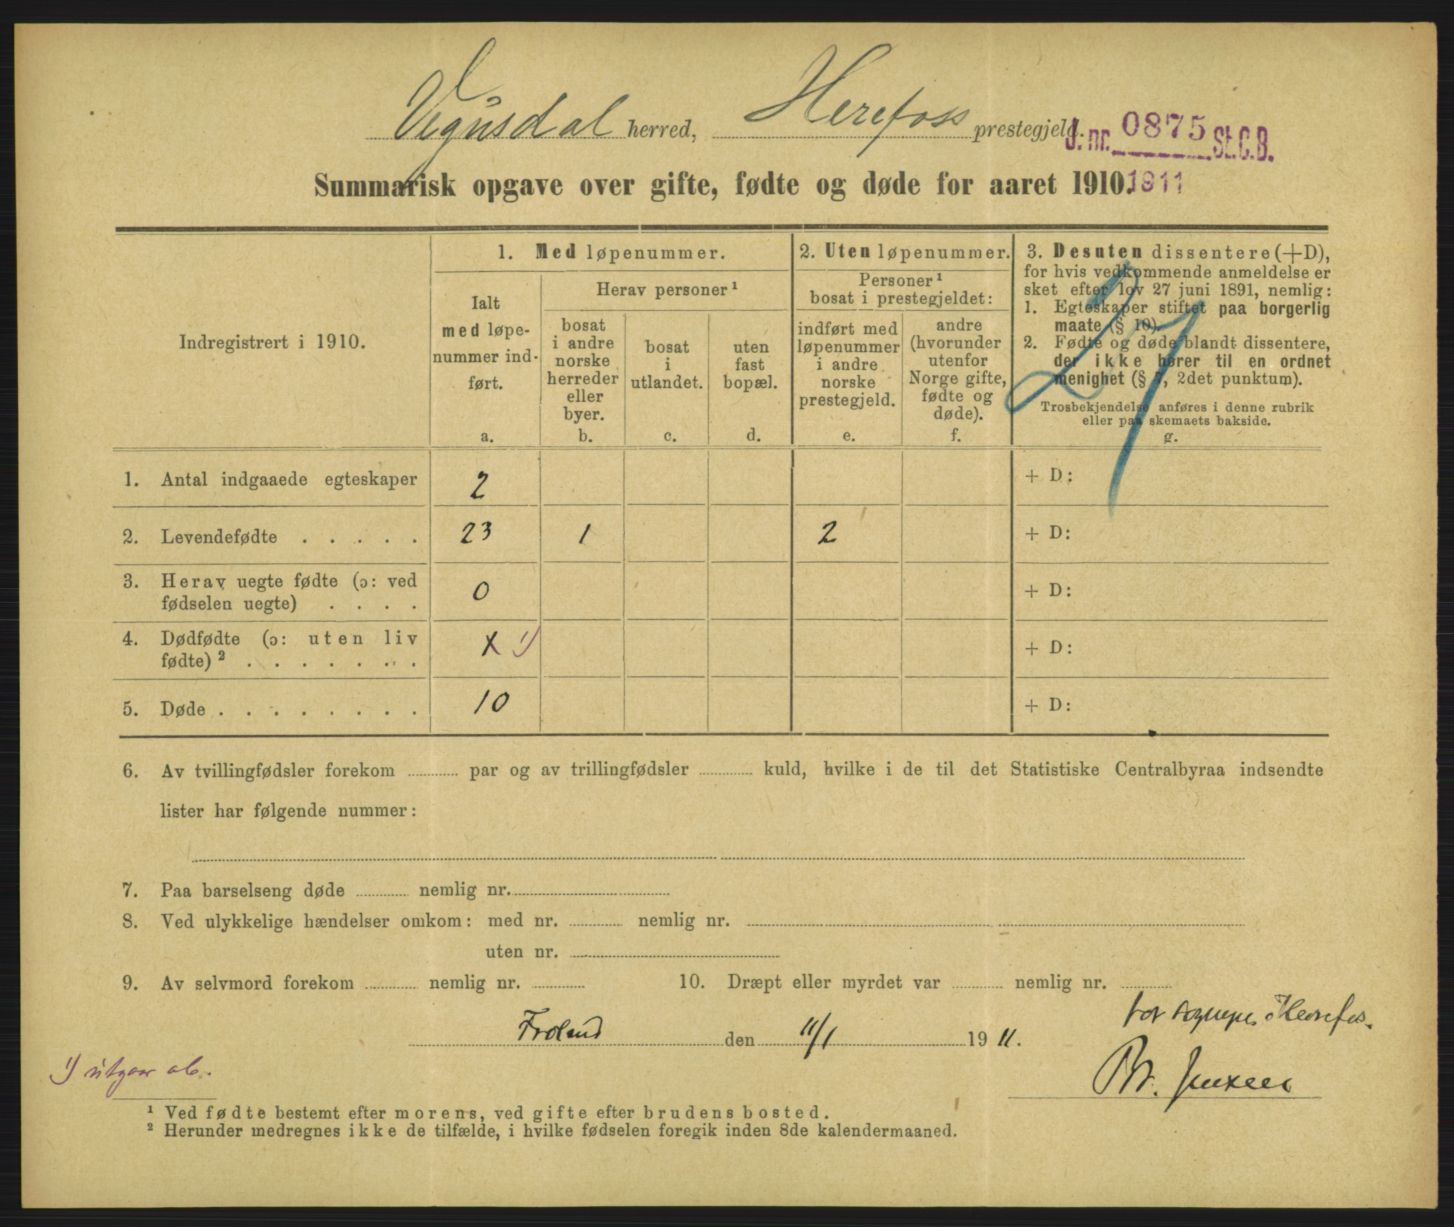 Vegusdal herred, Herefoss prestegjeld.
J. nr. 0875 St.C.B.
Summarisk opgave over gifte, fødte og døde for aaret 1910.
1911
Indregistrert i 1910.
1. Med løpenummer.
Ialt med løpe-
nummer ind-
ført.
a.
Herav personer ¹
bosat
i andre
norske
herreder
eller
byer.
b.
bosat
i
utlandet.
c.
uten
fast
bopæl.
d.
2. Uten løpenummer.
Personer ¹
bosat i prestegjeldet:
indført med
løpenummer
i andre
norske
prestegjeld.
e.
andre
(hvorunder
utenfor
Norge gifte,
fødte og
døde).
f.
3. Desuten dissentere (+D),
for hvis vedkommende anmeldelse er
sket efter lov 27 juni 1891, nemlig:
1. Egteskaper stiftet paa borgerlig
maate (§ 10).
2. Fødte og døde blandt dissentere,
der ikke hører til en ordnet
menighet (§ 7, 2det punktum).
Trosbekjendelse anføres i denne rubrik
eller paa skemaets bakside.
g.
1. Antal indgaaede egteskaper 2 + D:
2. Levendefødte . . . . . 23 1 2 + D:
3. Herav uegte fødte (ɔ: ved
fødselen uegte) . . . . 0 + D:
4. Dødfødte (ɔ: uten liv
fødte) ² . . . . . . . x 1) + D:
5. Døde . . . . . . . . 10 + D:
6. Av tvillingfødsler forekom ........ par og av trillingfødsler ........ kuld, hvilke i de til det Statistiske Centralbyraa indsendte
lister har følgende nummer:
7. Paa barselseng døde ........ nemlig nr.
8. Ved ulykkelige hændelser omkom: med nr. ........ nemlig nr.
uten nr.
9. Av selvmord forekom ........ nemlig nr. ........ 10. Dræpt eller myrdet var ........ nemlig nr.
Froland den 11/1 1911.
for sogneprest i Herefos.
1) utgaar
¹ Ved fødte bestemt efter morens, ved gifte efter brudens bosted.
² Herunder medregnes ikke de tilfælde, i hvilke fødselen foregik inden 8de kalendermaaned.